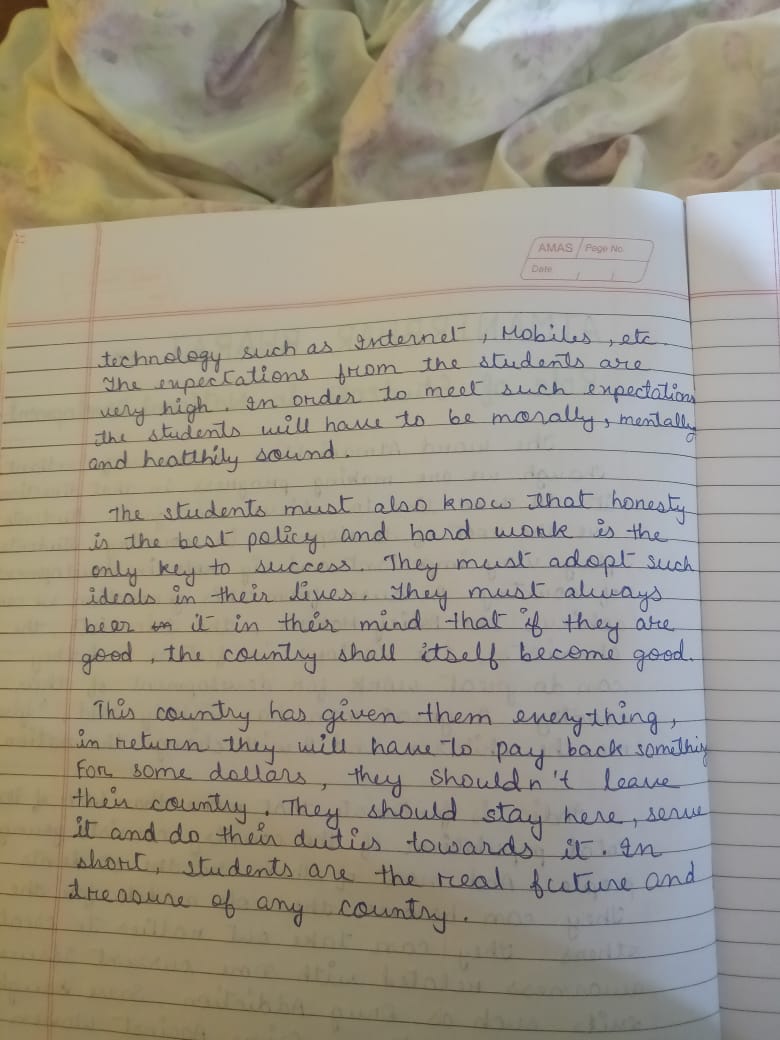 AMAS Page No.
Date
technology such as Internet, Mobiles, etc.
The expectations from the students are
very high. In order to meet such expectations
the students will have to be morally, mentally
and healthily sound.
The students must also know that honesty
is the best policy and hard work is the
only key to success. They must adopt such
ideals in their lives. They must always
bear it in their mind that if they are
good, the country shall itself become good.
This country has given them everything,
in return they will have to pay back something
For some dollars, they shouldn't leave
their country. They should stay here, serve
it and do their duties towards it. In
short, students are the real future and
treasure of any country.